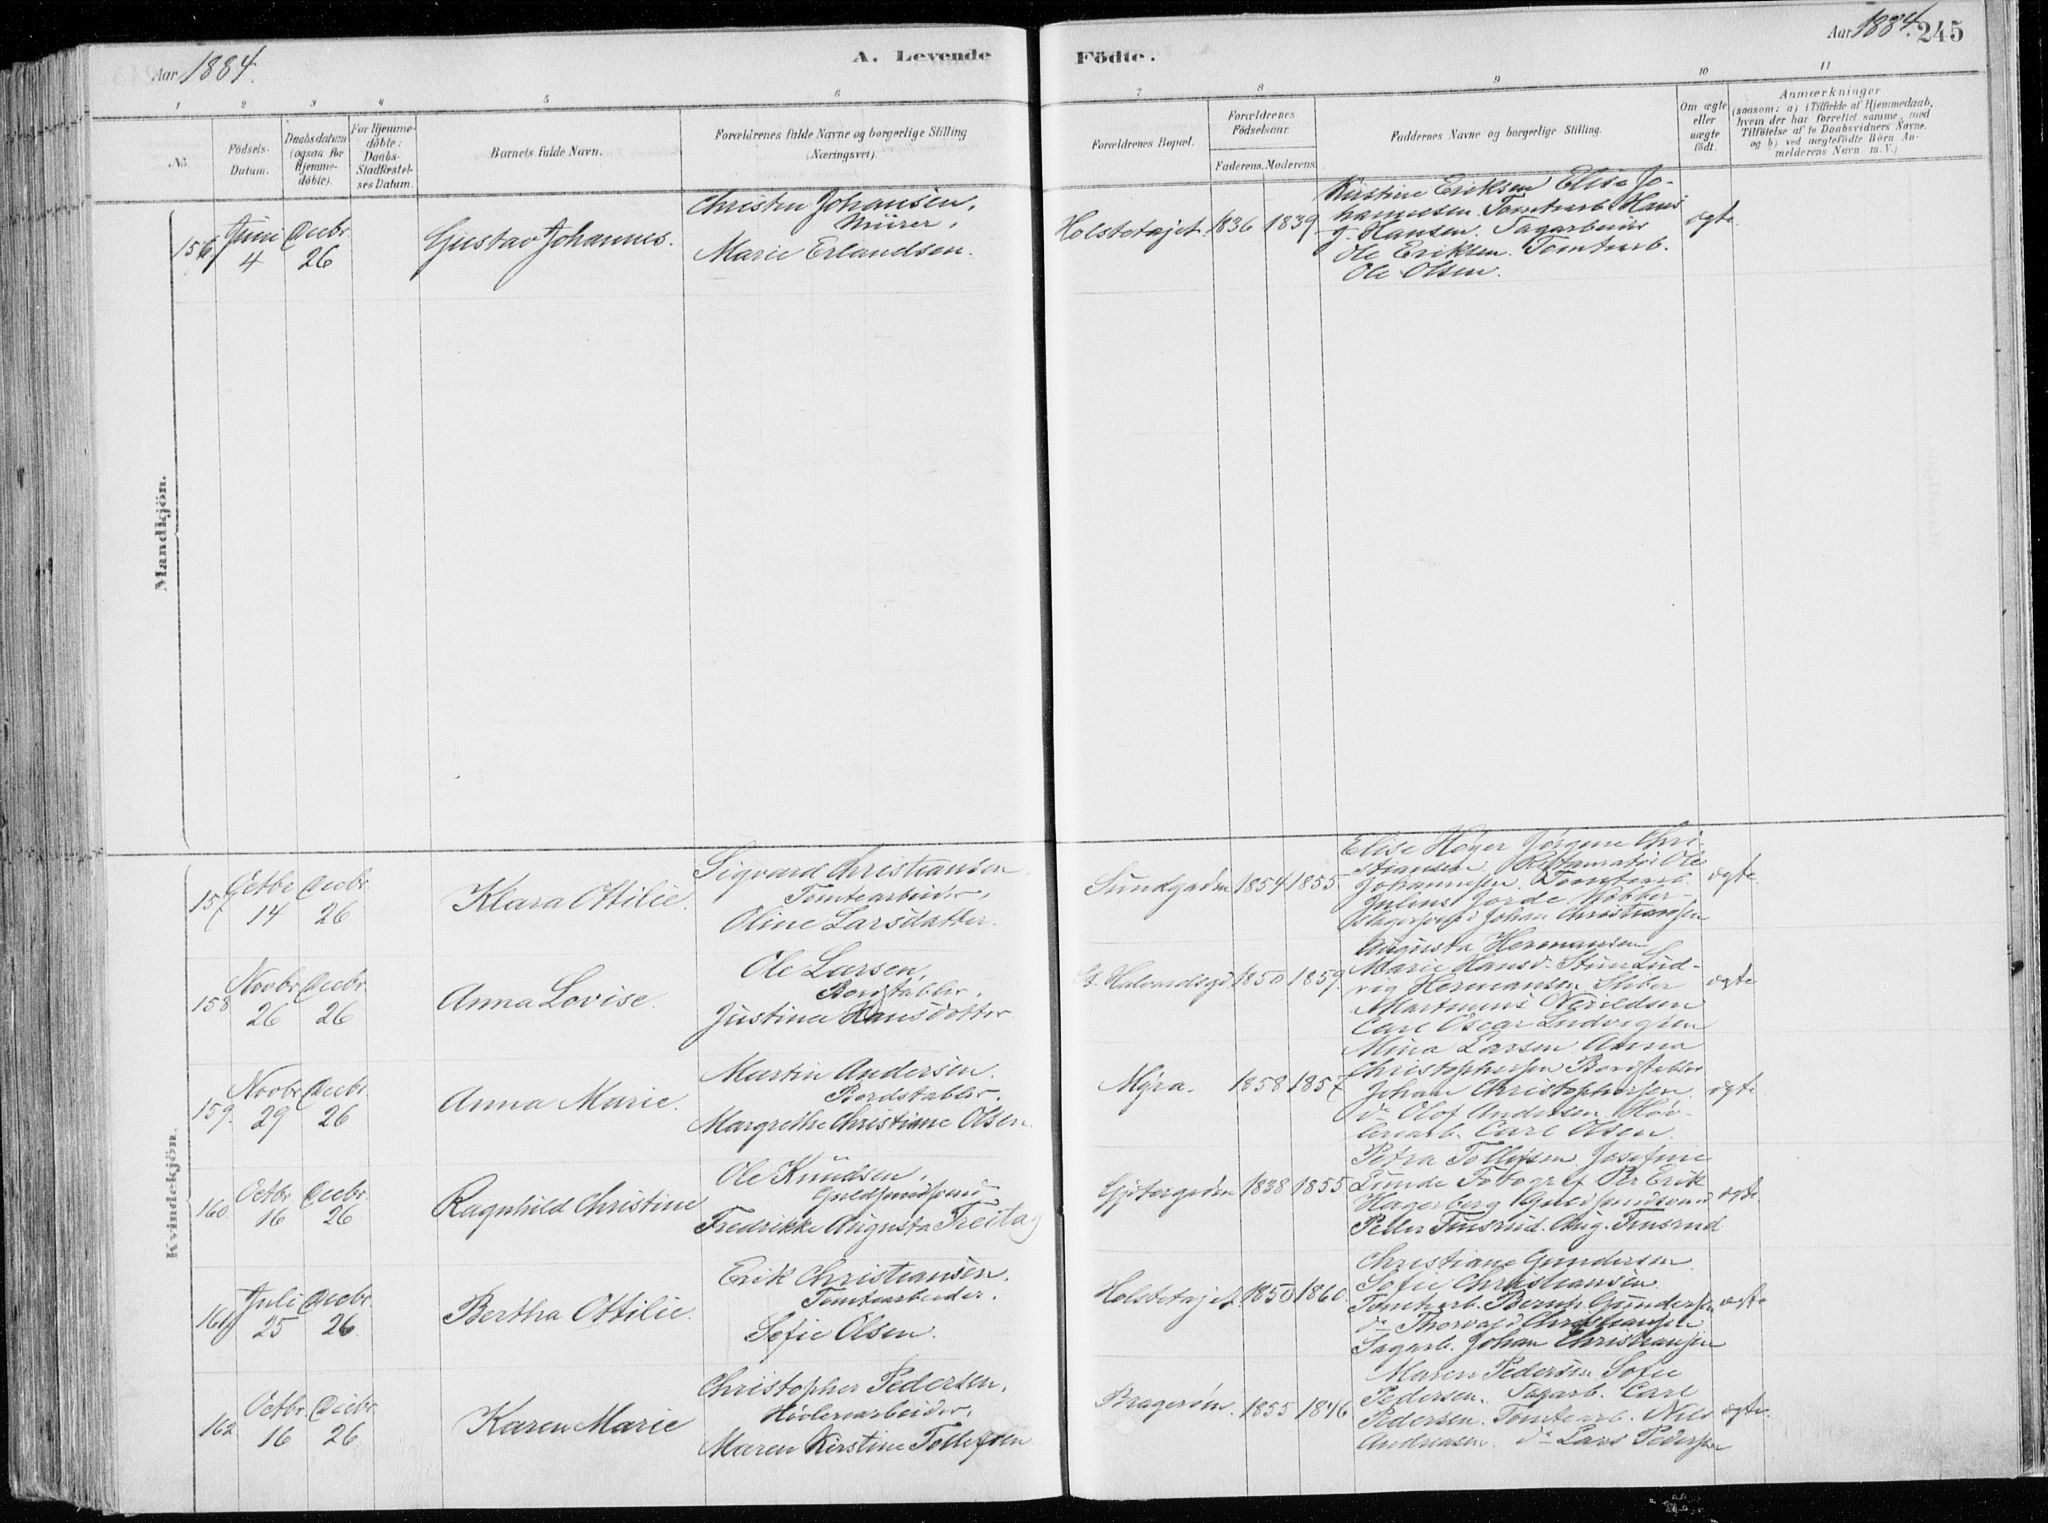 Aar 1884.
A. Levende
Födte.
Aar 1884.
245
1 2 3 4 5 6 7 8 9 10 11
No.
Födsels-
Datum.
Daabsdatum
(ogsaa for
Hjemme-
döbte).
For Hjemme-
döbte:
Daabs-
Stadfæstel-
ses Datum.
Barnets fulde Navn.
Forældrenes fulde Navne og borgerlige Stilling
(Næringsvei)
Forældrenes Bopæl.
Forældrenes
Födselsaar.
Faderens. Moderens.
Faddernes Navne og borgerlige Stilling.
Om ægte
eller
uægte
födt.
Anmærkninger
(saasom: a) i Tilfælde af Hjemmedaab,
hvem der har forrettet samme, med
Tilföielse af to Daabsvidners Navne.
og b) ved uægtefödte Börn An-
melderens Navn m. V.)
Mandkjön.
156
Juni
4
Decbr
26
Gustav Johannes.
Johansen,
Mürer,
Marie Erlandsen.
1836
1839
Kirstine Eriksen Elise Jo-
hannesen. Tomtearb. Hans
Hansen.
Ole Eriksen. Tomtearb.
Ole Olsen.
ægte.
Kvindekjön.
157
Octbr
14
Decbr
26
Klara Ottilie.
Sigvard Christiansen,
Tomtearbeider,
Oline Larsdatter.
1854
1855
Elise Høyer Jørgine Chri-
stiansen Ole
Johannesen. Tomtearb.
Julius Jorde Kobber-
Johan Christiansen
ægte
158
Novbr
26
Decbr.
26
Anna Lovise.
Ole Larsen,
Bordstabler,
Justine Hansdatter
1850
1859
Augusta Hermansen
Marie Hansd. Lud-
vig Hermansen
Carl Oscar Ludvigsen
ægte
159.
Novbr
29
Decbr.
26
Anna Marie.
Martin Andersen.
Bordstabler.
Margrethe Christiane Olsen.
Myra.
1858
1857
Mina Larsen Anna
Christophersen Bordstabler
Johan Christophersen
do Olof Andersen Høv-
leriarb. Carl Olsen.
ægte.
160
Octbr
16
Decbr.
26
Ragnhild Christine
Ole Knudsen,
Guldsmedsvend
Fredrikke Augusta Freitag
1838
1855
Petra Tollefsen Josefine
Lunde Fotograf Per Erik
Hagerberg Guldsmedsvend
Peder Finsrud. Aug. Finsrud
ægte
161
Juli
25
Decbr.
26
Bertha Ottilie.
Erik Christiansen.
Tomtearbeider.
Sofie Olsen.
1850
1860.
Christiane Gundersen.
Sofie Christiansen
Tomtearb. Bernh. Gundersen
do Thorvald Christiansen
Sagarb. Johan Christiansen
ægte
162
Octbr.
16
Decbr.
26
Karen Marie
Christopher Pedersen,
Høvleriarbeider,
Maren Kirstine Tollefsen
Bragerøen.
1855
1846
Maren Pedersen Sofie
Pedersen. Carl
Pedersen. Tomtearb. Nils
Andreasen. do Lars Pedersen
ægte.